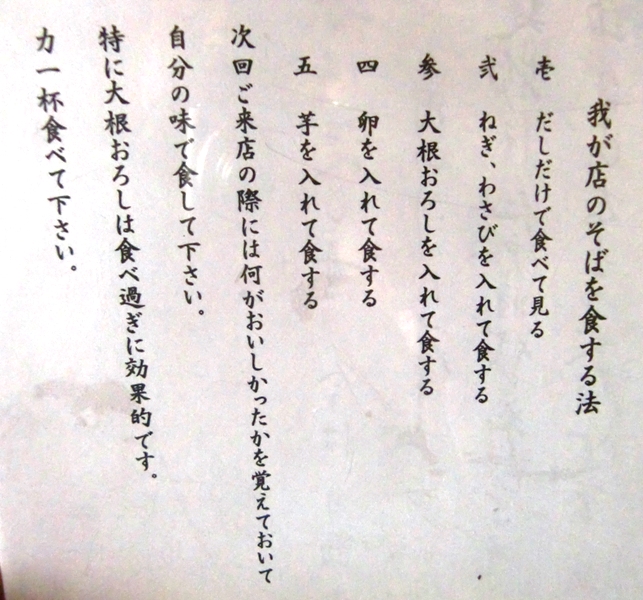 我が店のそばを食する法
壱 だしだけで食べて見る
弐 ねぎ、わさびを入れて食する
参 大根おろしを入れて食する
四 卵を入れて食する
五 芋を入れて食する
次回ご来店の際には何がおいしかったかを覚えておいて
自分の味で食して下さい。
特に大根おろしは食べ過ぎに効果的です。
力一杯食べて下さい。